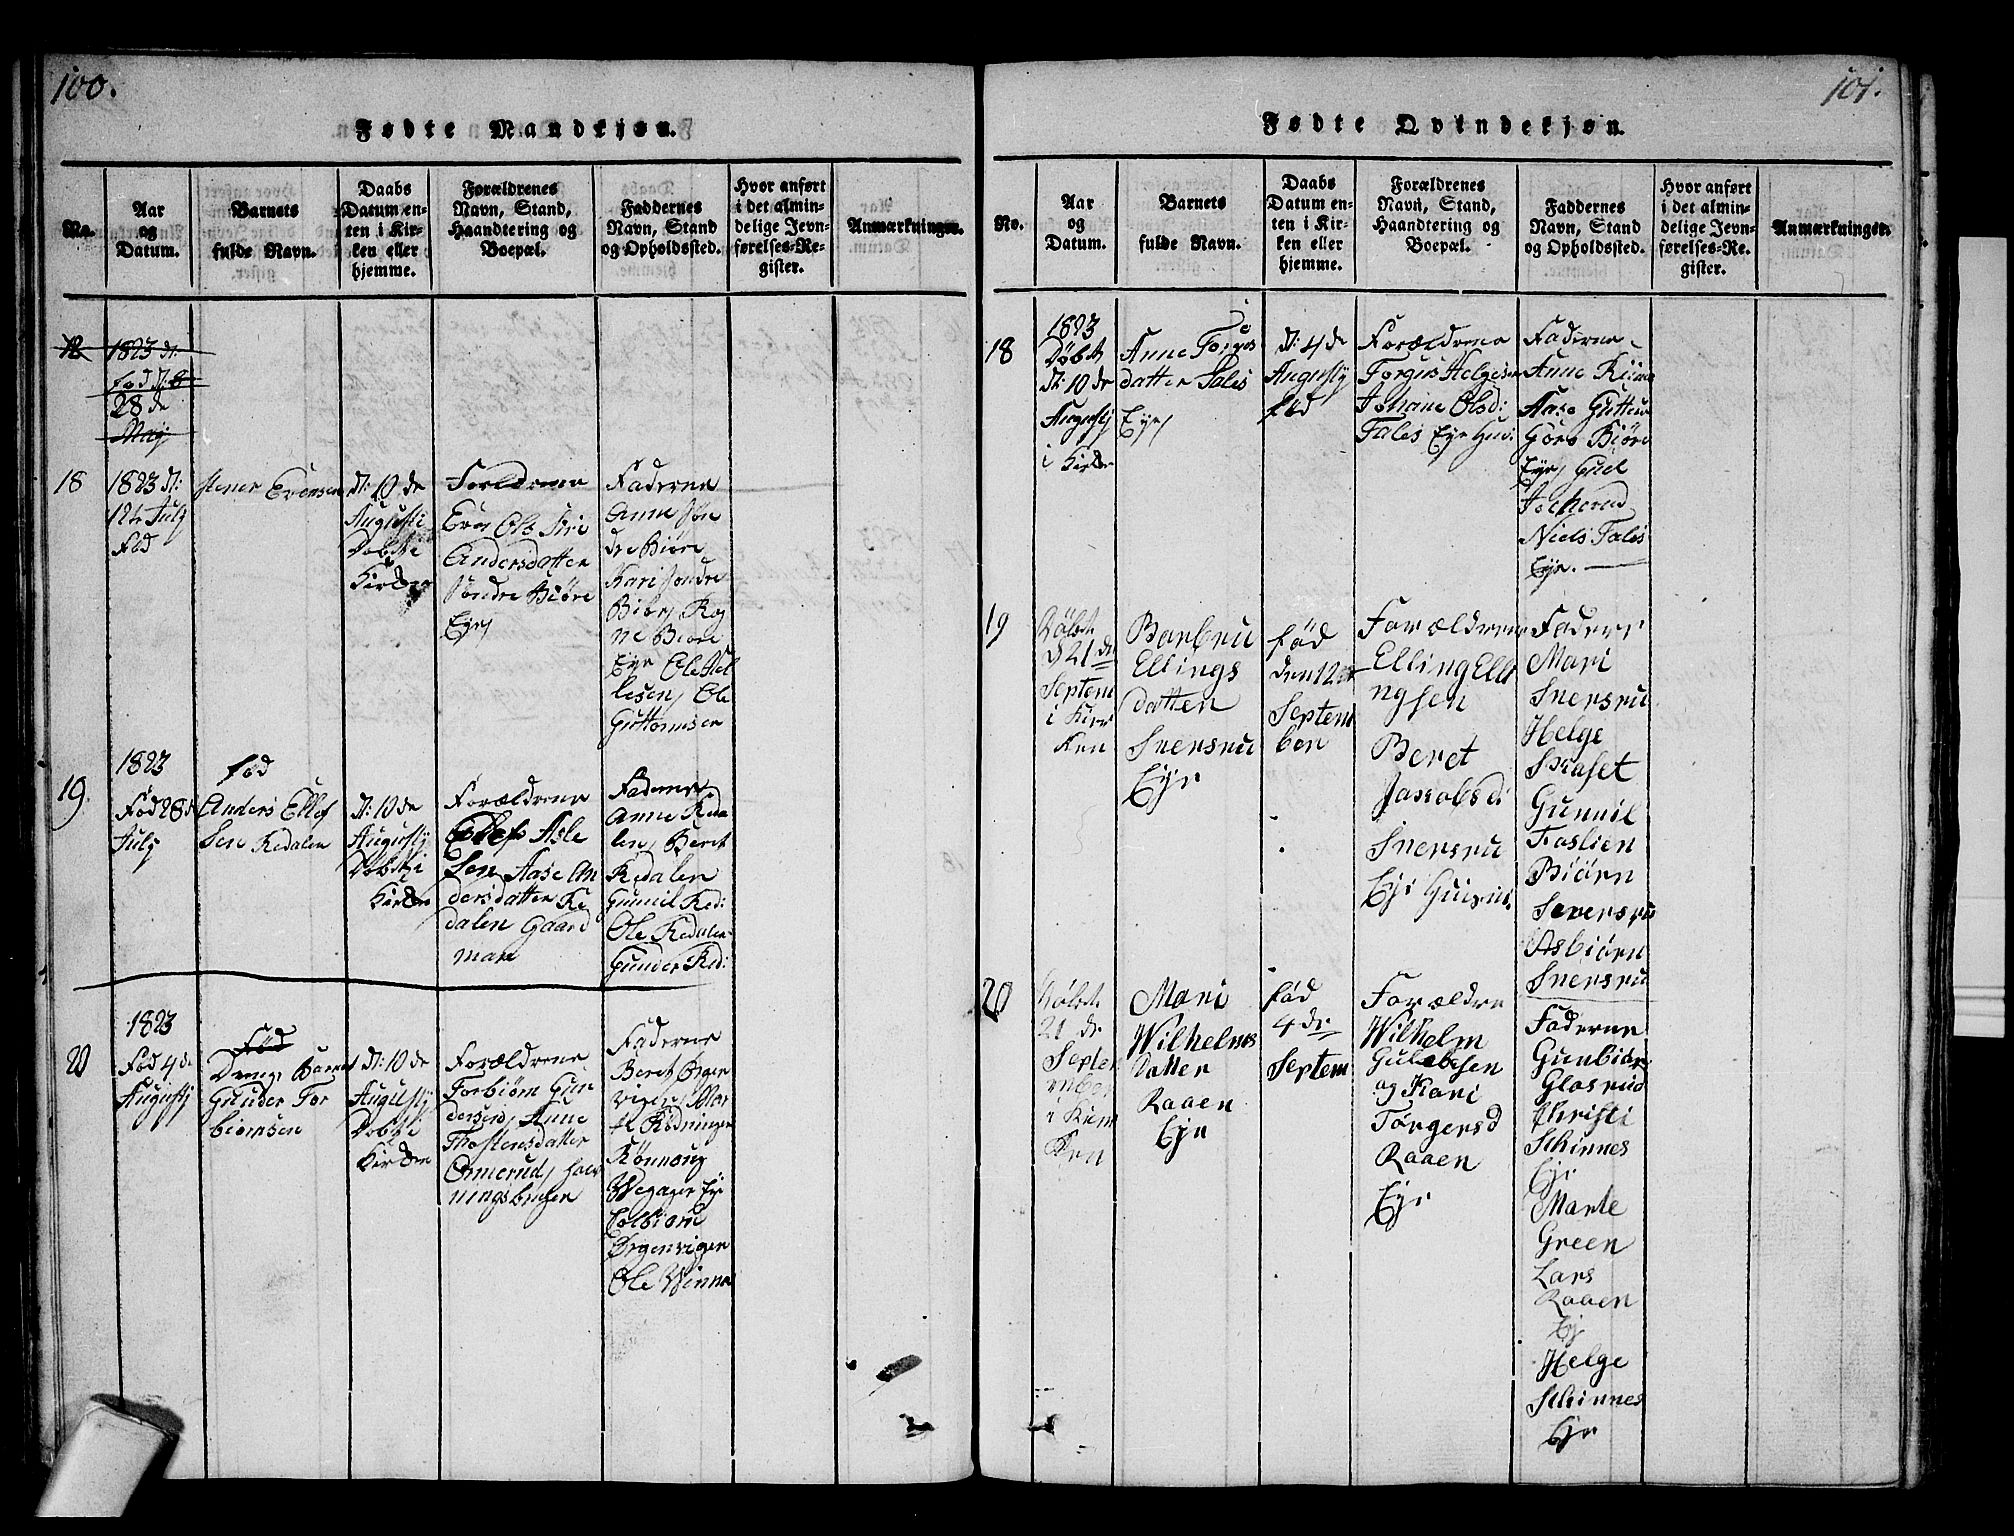 100.
Fødte Mandkjøn.
No.
Aar
og
Datum.
Barnets
fulde Navn.
Daabs
Datum en-
ten i Kir-
ken eller
hjemme.
Forældrenes
Navn, Stand,
Haandtering og
Boepæl.
Faddernes
Navn, Stand
og Opholdssted.
Hvor anført
i det almin-
delige Jevn-
førelses-Re-
gister.
Anmærkninger.
12
1823 d:
fød d: 8
28 de
Maij
18
1823 d:
12te July
Fød
Stener Evensen
d: 10 de
Augusti
Døbt i
Kirken
Foreldrene
Even Ols
Andersdatter
Søndre Biøre
Eyr
Faderne
Anne Søn
dre Biøre
Kari Sondre
Biøre Rag
ne Biøre
Eyr Ole Hel
lesen, Ole
Guttormsen
19.
1823
Fød 28 d
July
fød
Anders Ellef
Sen Kedalen
d: 10 de
Augustj
Døbt i
Kirken
Forældrene
Ellef Asle
Sen Aase An
dersdatter Ke
dalen Gaard
man
Faderne
Anne Keda
len, Beret
Kedalen
Gunnil Ked:
Ole Kedalen
Gunder Ked:
20
1823
Fød 4 de
Augustj
Fød
Drenge Barnet
Gunder Tor
biørnsen
d: 10 de
Augustj
Døbt i
Kirken
Forældrene
Torbiørn Gun
dersen, Anne
Thostensdatter
Ormerud,
ningsbruger
Faderne
Beret Ørgen
vigen, Mar
it Rødningen
Rønnoug
Wegager Eje
Colbiørn
Ørgenvigen
Ole Winne
101.
Fødte Qvindekjøn.
No.
Aar
og
Datum.
Barnets
fulde Navn.
Daabs
Datum en-
ten i Kir-
ken eller
hjemme.
Forældrenes
Navn, Stand,
Haandtering og
Boepæl.
Faddernes
Navn, Stand
og Opholdssted.
Hvor anført
i det almin-
delige Jevn-
førelses-Re-
gister.
Anmærkninger.
18
1823
Døbt
d: 10 de
Augustj
i Kirken
Anne Torgus
datter Tales
Eyr
d: 4 de
Augustj
fød
Forældrene
Torgus Helgesen
Johane Olsd:
Tales Eyr
Faderne
Anne
Aase Guttorm
Goro Biøre
Eyr, Gul
Niels Tales
Eyr.
19
Døbt
d 21 de
Septem
i Kirr
Ken
Barbru
Ellings
datter
Snersru
Eyr
fød
den 12 de
Septem
ber
Forældrene
Elling Elli
ngsen
Beret
Jacobsd:
Snersru
Eyr
Faderr
Mari
Snersru
Helge
Straset
Gunnil
Foslien
Biørn
Snersru
Asbiørn
Snersru
20
Døbt
21 de
Septe
mber
i Kirr
Ken
Mari
Wilhelms
Datter
Raaen
Eyr
fød
4 de
Septem
Forældre
Wilhelm
Gulebsen
og Kari
Torgersd
Raaen
Eyr
Faderne
Gunbiør
Glosrud
Christi
Skinnes
Eyr
Marte
Green
Lars
Raaen
Ey
Helge
Skinnes
Eyr